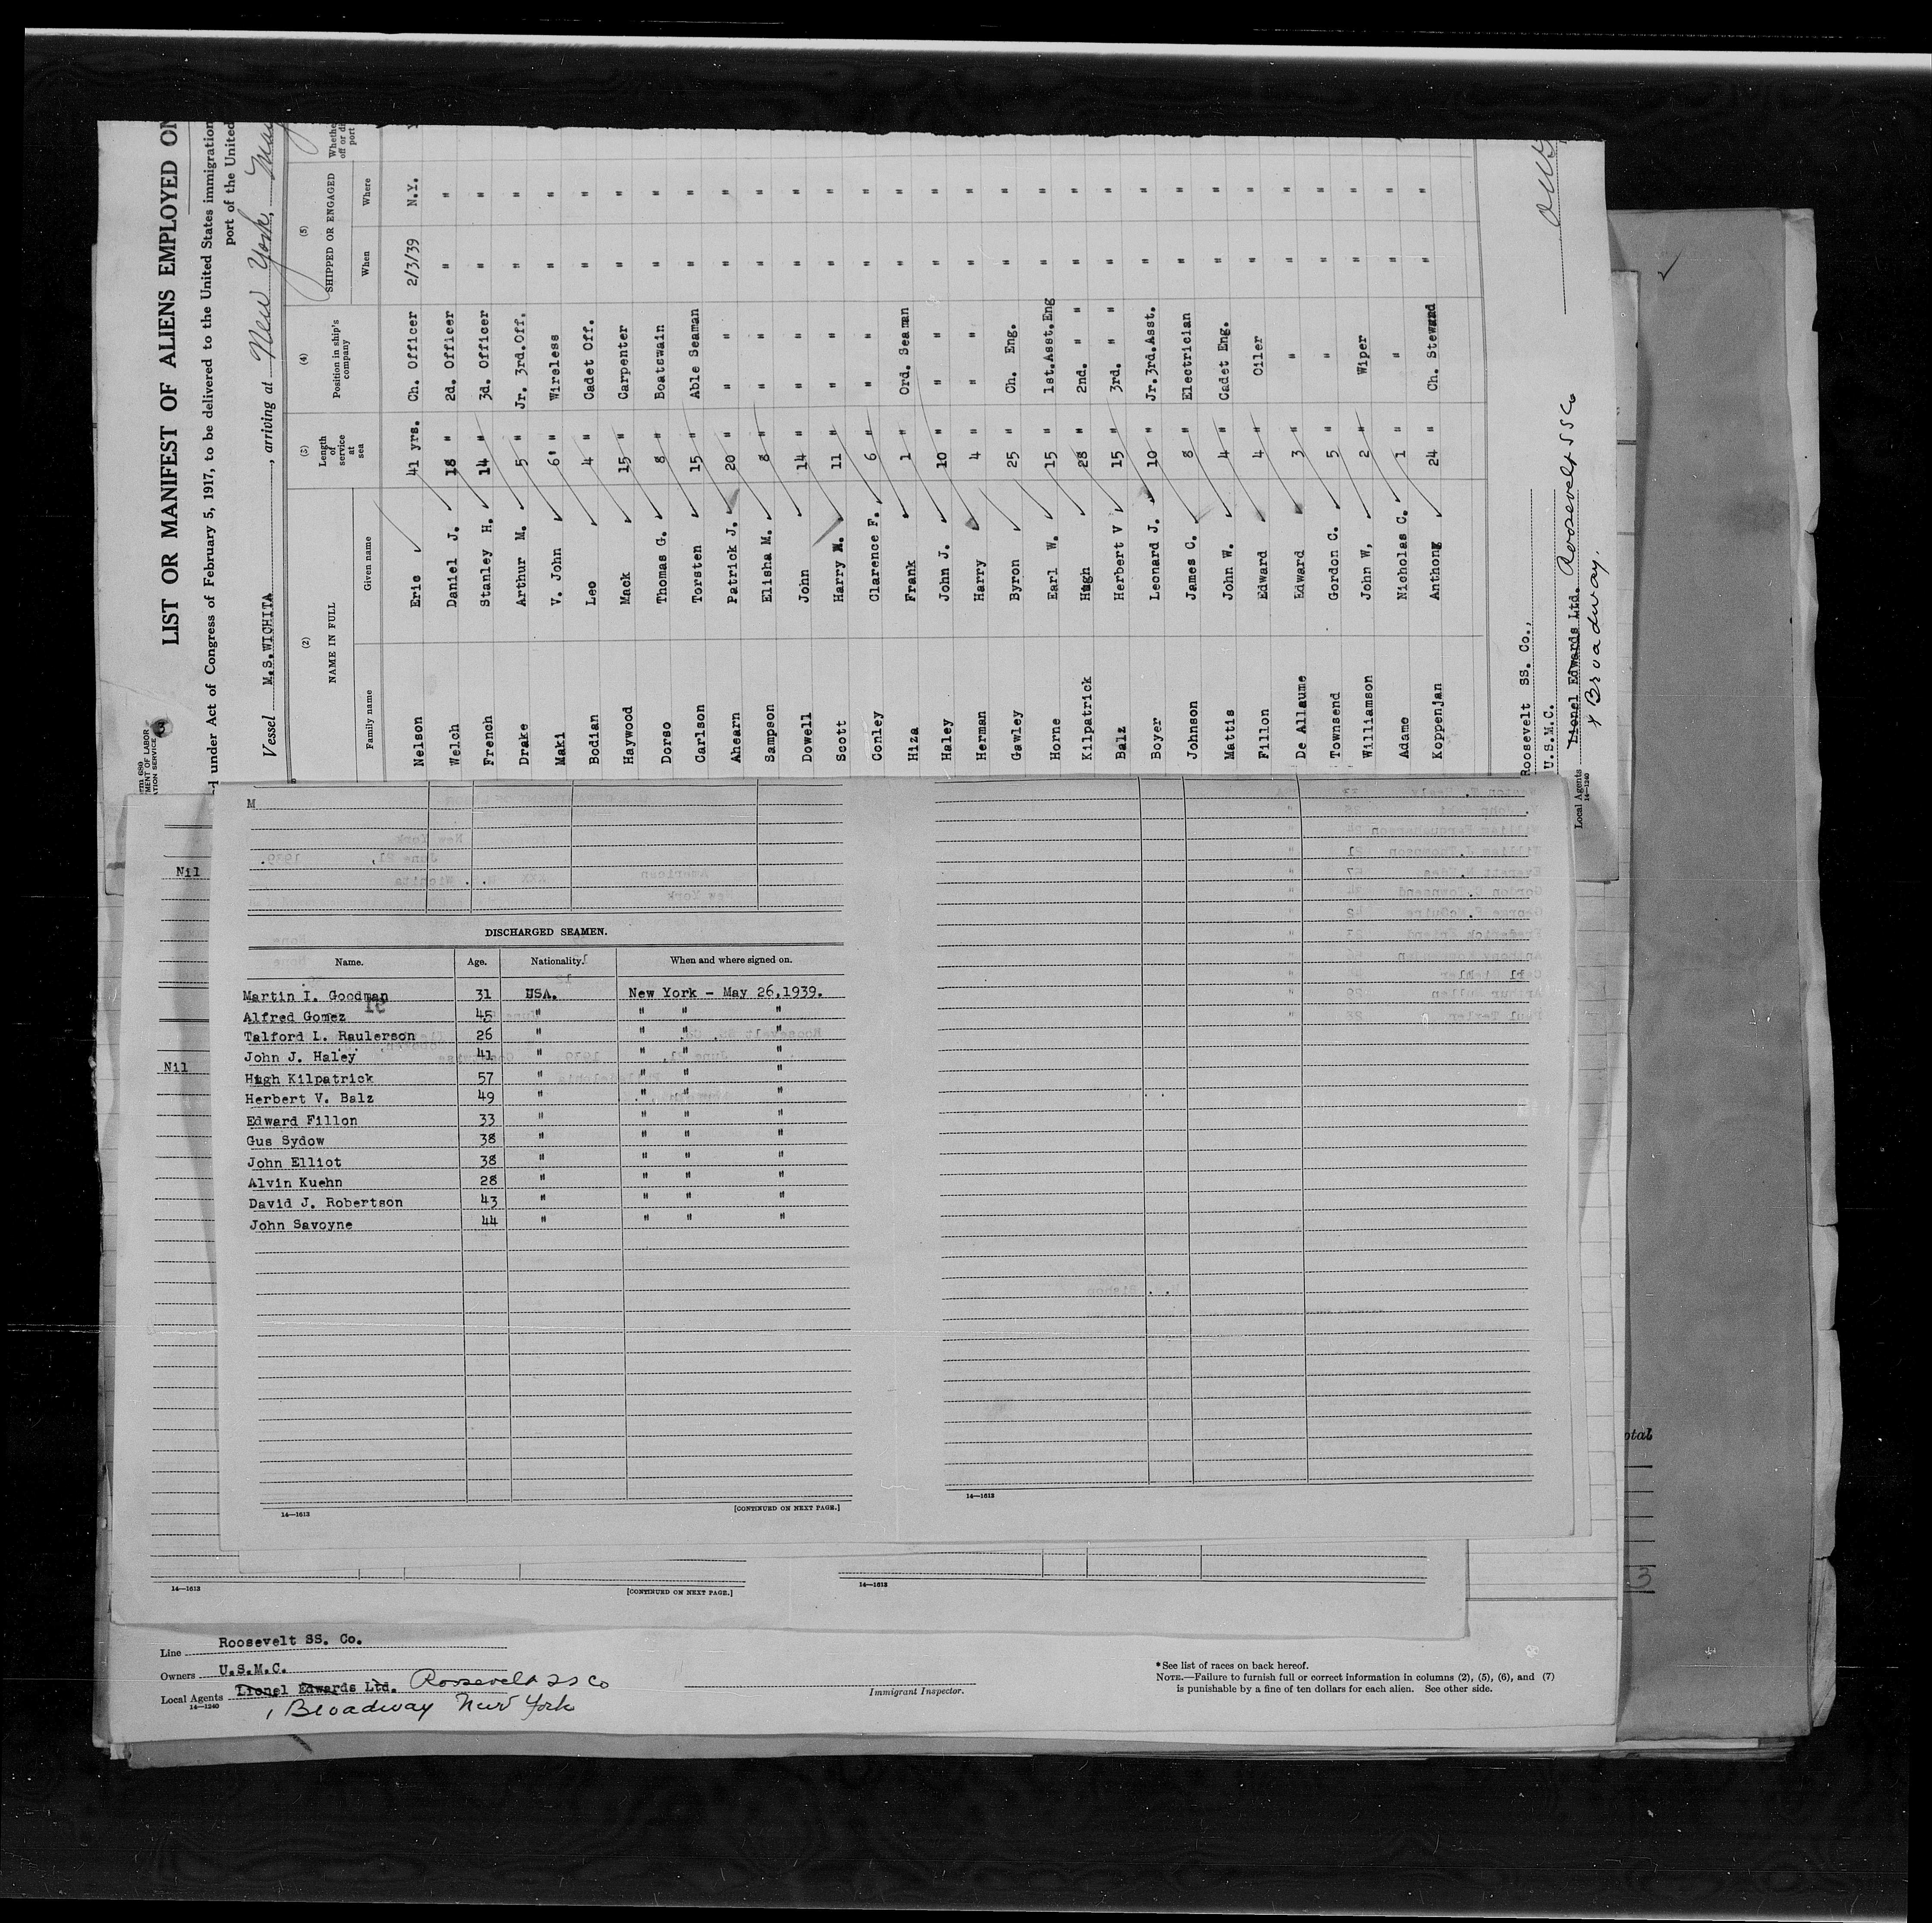 LIST OR MANIFEST OF ALIENS EMPLOYED ON
under Act of Congress of February 5, 1917, to be delivered to the United States immigration
port of the United
Vessel M.S.WICHITA, arriving at New York, May
(2) (3) (4) (5)
NAME IN FULL Length of service at sea Position in ship's company SHIPPED OR ENGAGED
Family name Given name When Where
Nelson Eric 41 yrs. Ch. Officer 2/3/39 N.Y.
Welch Daniel J. 18 " 2d. Officer " "
French Stanley H. 14 " 3d. Officer " "
Drake Arthur M. 5 " Jr. 3rd.Off. " "
Maki V. John 6 " Wireless " "
Bodian Leo 4 " Cadet Off. " "
Haywood Mack 15 " Carpenter " "
Dorso Thomas G. 8 " Boatswain " "
Carlson Torsten 15 " Able Seaman " "
Ahearn Patrick J. 20 " " " "
Sampson Elisha M. 8 " " " "
Dowell John 14 " " " "
Scott Harry M. 11 " " " "
Conley Clarence F. 6 " " " "
Hiza Frank 1 " Ord. Seaman " "
Haley John J. 10 " " " "
Herman Harry 4 " " " "
Gawley Byron 25 " Ch. Eng. " "
Horne Earl W. 15 " 1st.Asst.Eng " "
Kilpatrick Hugh 28 " 2nd. " " " "
Balz Herbert V 15 " 3rd. " " "
Boyer Leonard J. 10 " Jr.3rd.Asst. " "
Johnson James C. 8 " Electrician " "
Mattis John W. 4 " Cadet Eng. " "
Fillon Edward 4 " Oiler " "
De Allaume Edward 3 " " " "
Townsend Gordon C. 5 " " " "
Williamson John W, 2 " Wiper " "
Adamo Nicholas C. 1 " " " "
Koppenjan Anthony 24 " Ch. Steward " "
Roosevelt SS. Co.,
U.S.M.C.
Local Agents Lionel Edwards Ltd. Roosevelt SS Co
14—1240
Broadway.
M
Nil
Nil
DISCHARGED SEAMEN.
Name. Age. Nationality. When and where signed on.
Martin I. Goodman 31 USA. New York - May 26,1939.
Alfred Gomez 45 " " " "
Talford L. Raulerson 26 " " " "
John J. Haley 41 " " " "
Hugh Kilpatrick 57 " " " "
Herbert V. Balz 49 " " " "
Edward Fillon 33 " " " "
Gus Sydow 38 " " " "
John Elliot 38 " " " "
Alvin Kuehn 28 " " " "
David J. Robertson 43 " " " "
John Savoyne 44 " " " "
14—1613 [CONTINUED ON NEXT PAGE.]
14—1613
14—1613 [CONTINUED ON NEXT PAGE.]
14—1613
Line Roosevelt SS. Co.
Owners U.S.M.C.
Local Agents Lionel Edwards Ltd. Roosevelt SS Co
14—1240
1 Broadway New York
Immigrant Inspector.
*See list of races on back hereof.
NOTE.—Failure to furnish full or correct information in columns (2), (5), (6), and (7)
is punishable by a fine of ten dollars for each alien. See other side.
otal
3